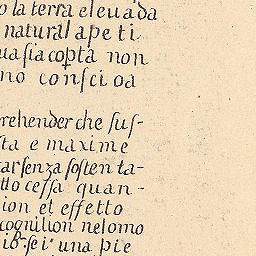 o la terra eleuada
natural apeti
ua sia copta non
no conscioa
rehender che sus-
sta e maxime
tar senza sosten ta-
tto cessa quan-
ion et effetto
cognition nelomo
se i una pie